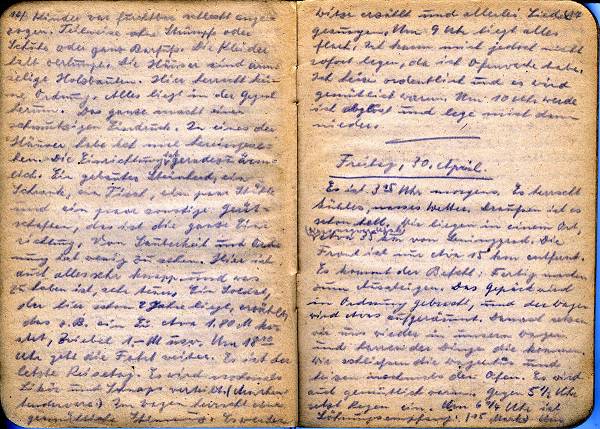 Kinder der furchtbar schlecht ange-
zogen. Teilweise ohne Strümpfe oder
Schuhe oder ganz Barfuß. Die Kleider
halb verlumpt. Die Häuser sind arm-
selige Holzbauten. Hier herrscht kei-
ne Ordnung. Alles liegt in der Gegend
herum. Das ganze macht einen
schmutzigen Eindruck. In eines der
Häuser habe ich mal hereingese-
hen. Die Einrichtung ist geradezu ärm-
lich. Ein gebautes
Schrank, ein Tisch, ein paar Stühle
und ein paar sonstige Gerät-
schaften, das ist die ganze Ein-
richtung. Von Sauberkeit und Ord-
nung ist wenig zu sehen. Hier ist
auch alles sehr knapp und was
zu haben ist, sehr teuer. Ein Soldat,
der hier schon 2 Jahre liegt, erzählt,
das z.B. ein Ei etwa 1,80 M ko-
stet, Zwiebel 1,- M usw. Um 18
Uhr geht die Fahrt weiter. Es ist der
letzte Reisetag. Es wird nochmals
Likör und Schnaps verteilt. (Marketen-
derware) Im Wagen herrscht eine
gemütliche Es werden
witze erzählt und allerlei Lieder
gesungen. Um 9 Uhr liegt alles
flach. Ich kann mich jedoch nicht
sofort legen, da ich Ofenwache habe.
Ich heize ordentlich und es wird
gemütlich warm. Um 10 Uhr werde
ich abgelöst und lege mich dann
nieder.
Freitag, 30. April.
Es ist 3 25 Uhr morgens. Es herrscht
kühles, nasses Wetter. Draußen ist es
schon hell. Wir liegen in einem Ort,
etwa 35 km von Leningrad. Die
Front ist nur etwa 15 km entfernt.
Es kommt der Befehl: Fertig machen
zum Aussteigen. Das gepäck wird
in Ordnung gebracht, und der Wagen
wird etwas aufgeräumt. Danach setzen
wir uns wieder in unseren Wagen
und harren der Dinge die kommen.
Wir schließen die Wagentür und
heizen nochmals den Ofen. Es wird
auch gemütlich warm. Gegen 5 1/2 Uhr
setzt Regen ein. Um 6 1/4 Uhr ist
Löhnungsempfang.